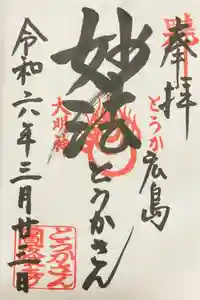 奉拝
とうか
広島
妙法
大明神
とうかさん
令和六年三月廿三日
とうかさん
圓隆寺